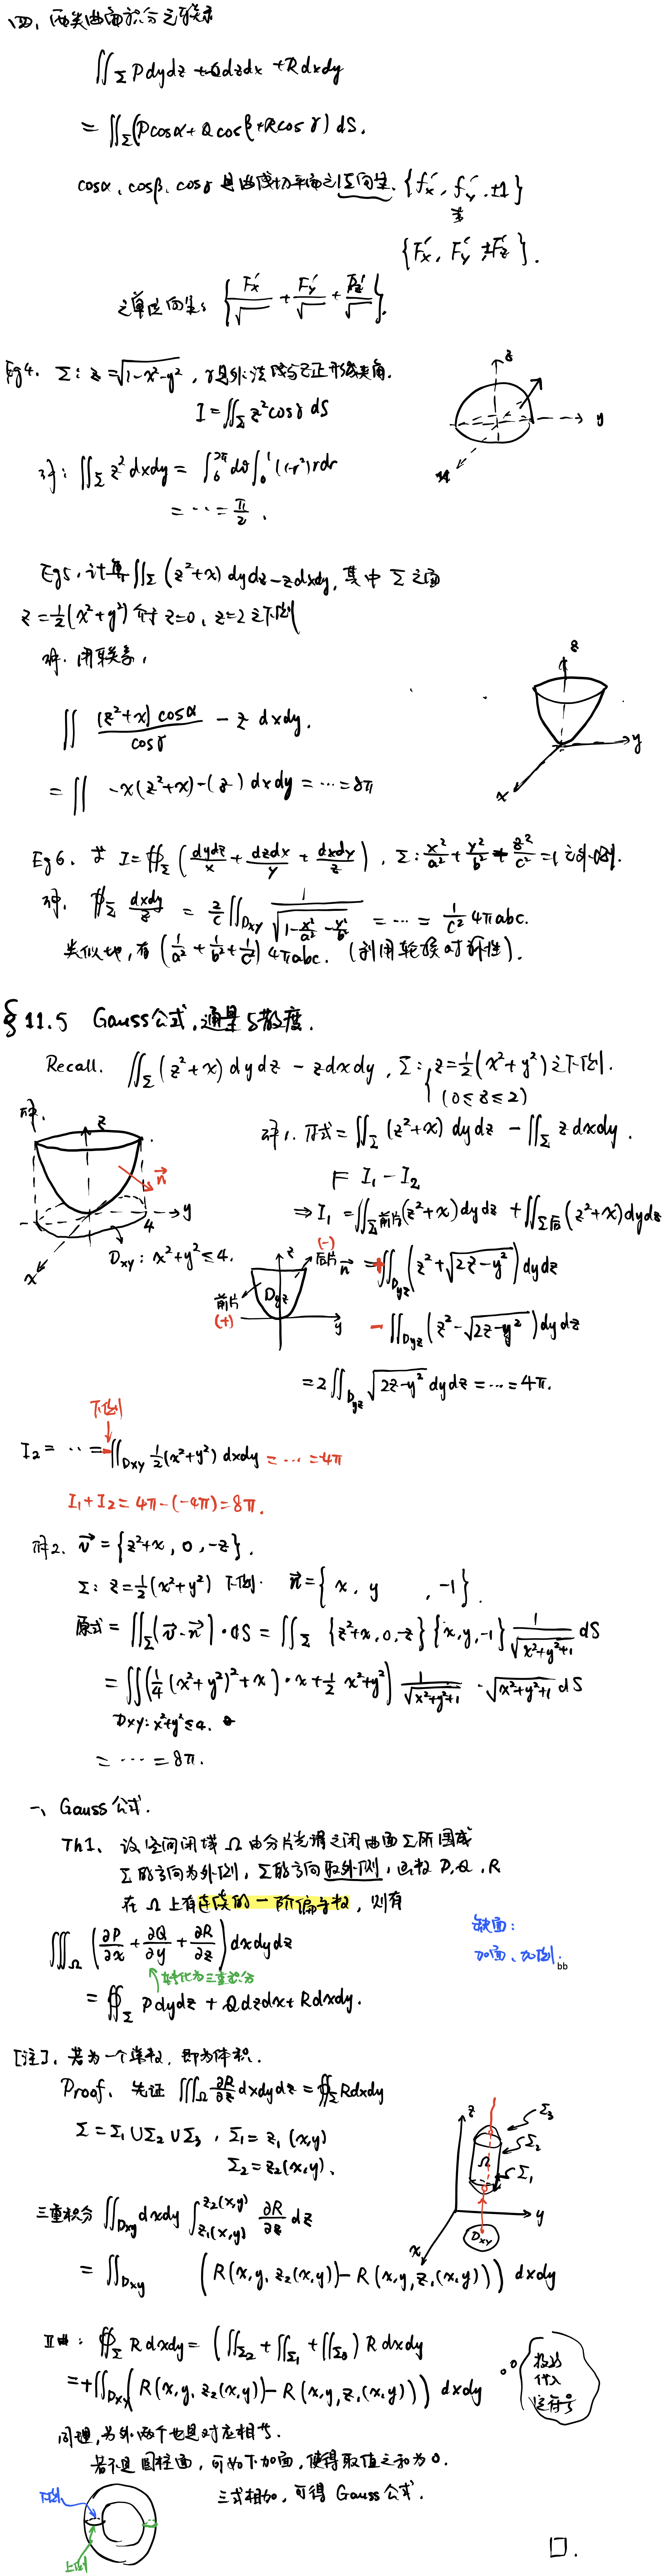 四、两类曲面积分之联系
∬_Σ Pdydz + Qdzdx + Rdxdy
= ∬_Σ (Pcosα + Qcosβ + Rcosγ) dS.
cosα, cosβ, cosγ 是曲线切平面之法向量. {f'x, f'y, ±1}
或
{F'x, F'y, ±F'z}.
之单位向量: {F'x/√ + F'y/√ + F'z/√}.
Eg4. Σ: z = √(1-x²-y²), γ是外法线与z正形成夹角.
z
y
x
I = ∬_Σ z²cosγ dS
解: ∬_Σ z² dxdy = ∫_0^{2π} dθ ∫_0^1 (1-r²) r dr
= ⋯ = π/2.
Eg5. 计算 ∬_Σ (z²+x) dydz - zdxdy, 其中 Σ 之面
z = ½(x²+y²) 介于 z=0, z=2 之下侧
解. 用联系,
z
y
x
∬ (z²+x) cosα / cosγ - z dxdy.
= ∬ -x(z²+x) - (z) dxdy = ⋯ = 8π
Eg6. 求 I = ∯_Σ (dydz/x + dzdx/y + dxdy/z), Σ: x²/a² + y²/b² + z²/c² = 1 之外侧.
解. ∯_Σ dxdy/z = 2/c ∬_Dxy 1/√(1 - x²/a² - y²/b²) = ⋯ = 1/c² 4πabc.
类似地, 有 (1/a² + 1/b² + 1/c²) 4πabc. (利用轮换对称性).
§ 11.5 Gauss公式, 通量与散度.
Recall. ∬_Σ (z²+x) dydz - zdxdy, Σ: { z = ½(x²+y²) 之下侧.
(0≤z≤2)
解.
z
n⃗
y
4
x
Dxy: x²+y² ≤ 4.
解1. 原式 = ∬_Σ (z²+x) dydz - ∬_Σ z dxdy.
= I₁ - I₂
⇒ I₁ = ∬_Σ前片 (z²+x) dydz + ∬_Σ后 (z²+x) dydz
(-)
后片 n⃗
z
Dyz
前片
(+)
y
= +∬_Dyz (z² + √(2z-y²)) dydz
- ∬_Dyz (z² - √(2z-y²)) dydz
= 2∬_Dyz √(2z-y²) dydz = ⋯ = 4π.
下侧
I₂ = ⋯ = -∬_Dxy ½(x²+y²) dxdy = ⋯ = -4π
I₁ + I₂ = 4π - (-4π) = 8π.
解2. v⃗ = {z²+x, 0, -z}.
Σ: z = ½(x²+y²) 下侧. n⃗ = {x, y, -1}.
原式 = ∬_Σ (v⃗·n⃗)·dS = ∬_Σ {z²+x, 0, -z} {x, y, -1} 1/√(x²+y²+1) dS
= ∬ (¼(x²+y²)² + x)·x + ½ x²+y²) 1/√(x²+y²+1) · √(x²+y²+1) dS
Dxy: x²+y² ≤ 4.
= ⋯ = 8π.
一、Gauss 公式.
Th1. 设空间闭域 Ω 由分片光滑之闭曲面 Σ 所围成
Σ 的方向为外侧, Σ的方向取外侧, 函数 P, Q, R
在 Ω 上有连续的一阶偏导数, 则有
∭_Ω (∂P/∂x + ∂Q/∂y + ∂R/∂z) dxdydz
转化为三重积分
= ∯_Σ Pdydz + Qdzdx + Rdxdy.
缺面:
加面、加侧.
bb
[注]. 若为一个常数, 即为体积.
Proof. 先证 ∭_Ω ∂R/∂z dxdydz = ∯_Σ Rdxdy
Σ = Σ₁ ∪ Σ₂ ∪ Σ₃, Σ₁ = z₁(x,y)
Σ₂ = z₂(x,y).
z
Σ₃
Σ₂
Σ₁
Ω
y
x
Dxy
三重积分 ∬_Dxy dxdy ∫_{z₁(x,y)}^{z₂(x,y)} ∂R/∂z dz
= ∬_Dxy (R(x,y,z₂(x,y)) - R(x,y,z₁(x,y))) dxdy
∯_Σ R dxdy = (∬_Σ₂ + ∬_Σ₁ + ∬_Σ₃) R dxdy
= +∬_Dxy (R(x,y,z₂(x,y)) - R(x,y,z₁(x,y))) dxdy
投影
代入
定符号
同理, 另外两个也是对应相等.
若不是圆柱面, 可如下加面, 使得取值之和为0.
三式相加, 可得 Gauss 公式.
下侧
上侧
□.